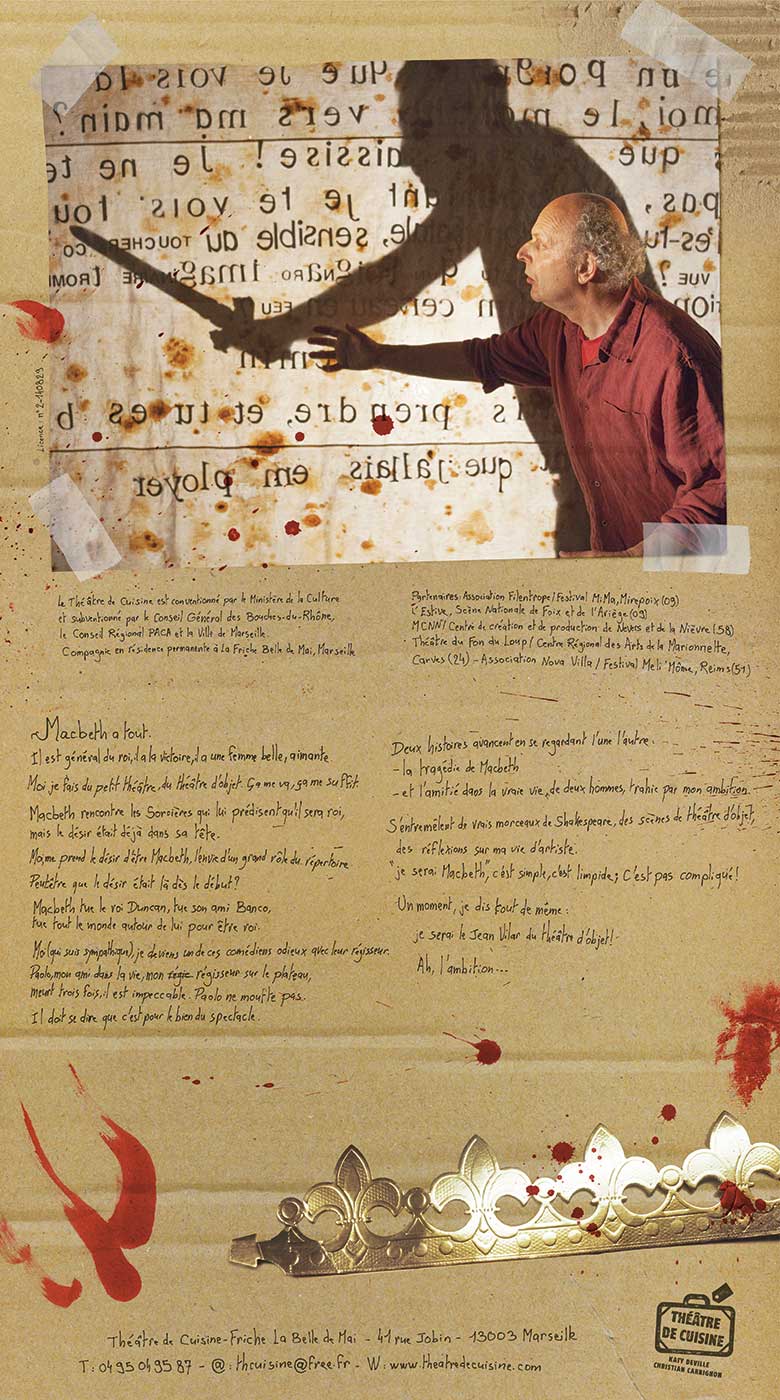 un que je vois la
moi, le vers ma main?
que Je ne te
pas, je te vois tou
es-tu sensible au TOUCHER CO
VUE? imaginaire
cerveau en FEU
prendre, et tu es b
que j'allais em ployer
Licence n°2-140829
Le Théâtre de Cuisine est conventionné par le Ministère de la Culture
et subventionné par le Conseil Général des Bouches-du-Rhône,
le Conseil Régional PACA et la Ville de Marseille.
Compagnie en résidence permanente à La Friche Belle de Mai, Marseille
Partenaires: Association Filentrope/Festival MiMa, Mirepoix (09)
L'Estive, Scène Nationale de Foix et de l'Ariège (09)
MCNN/ Centre de création et de production de Nevers et de la Nièvre (58)
Théâtre du Fon du Loup/ Centre Régional des Arts de la Marionnette,
Carves (24) - Association Nova Villa / Festival Meli'Môme, Reims (51)
Macbeth a tout.
Il est général du roi, il a la victoire, il a une femme belle, aimante.
Moi je fais du petit théâtre, du théâtre d'objet. Ça me va, ça me suffit.
Macbeth rencontre les Sorcières qui lui prédisent qu'il sera roi,
mais le désir était déjà dans sa tête.
Moi, me prend le désir d'être Macbeth, l'envie d'un grand rôle du répertoire.
Peut être que le désir était là dès le début?
Macbeth tue le roi Duncan, tue son ami Banco,
tue tout le monde autour de lui pour être roi.
Moi (qui suis sympathique), je deviens un de ces comédiens odieux avec leur régisseur.
Paolo, mon ami dans la vie, mon régisseur sur le plateau,
meurt trois fois, il est impeccable. Paolo ne moufte pas.
Il doit se dire que c'est pour le bien du spectacle.
Deux histoires avancent en se regardant l'une l'autre:
- la tragédie de Macbeth
- et l'amitié dans la vraie vie, de deux hommes, trahie par mon ambition.
S'entremêlent de vrais morceaux de Shakespeare, des scènes de théâtre d'objet,
des réflexions sur ma vie d'artiste.
"je serai Macbeth", c'est simple, c'est limpide; C'est pas compliqué!
Un moment, je dis tout de même:
je serai le Jean Vilar du théâtre d'objet!
Ah, l'ambition...
Théâtre de Cuisine-Friche La Belle de Mai - 41 rue Jobin - 13003 Marseille
T: 04 95 04 95 87 - @: thcuisine@free.fr - W: www.theatredecuisine.com
THÉÂTRE
DE CUISINE
KATY DEVILLE
CHRISTIAN CARRIGNON